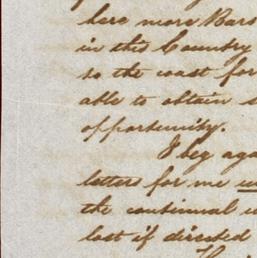 here more
in this Country
to the coast for
able to obtain
opportunity.
I beg
letters for me
the continual
lost if directed